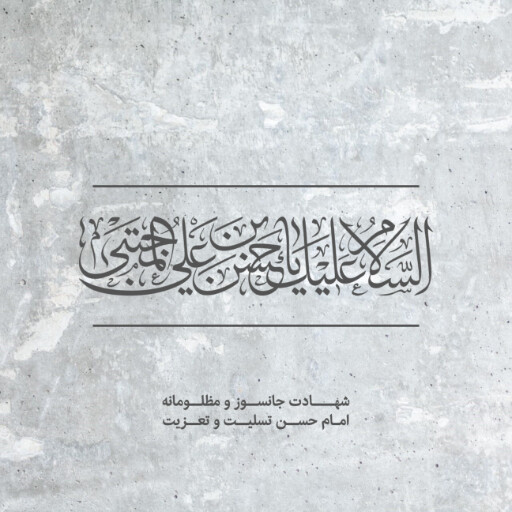 السلام علیك یا حسن بن علي المجتبی
شهادت جانسوز و مظلومانه
امام حسن تسلیت و تعزیت